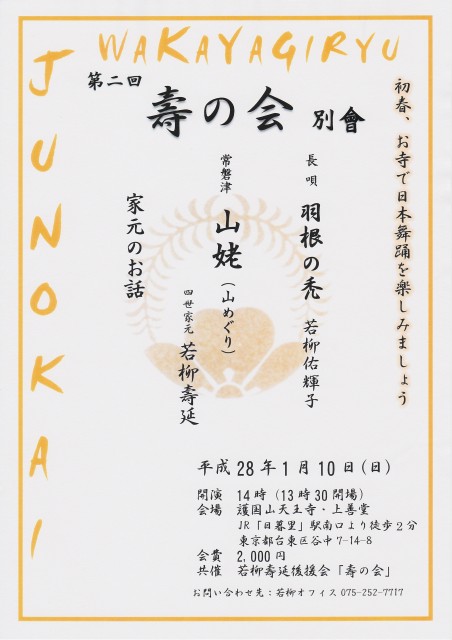 WAKAYAGIRYU
JUNOKAI
第二回
壽の会 別會
初春、お寺で日本舞踊を楽しみましょう
長唄 羽根の禿 若柳佑輝子
常磐津 山姥(山めぐり)
四世家元 若柳壽延
家元のお話
平成28年1月10日(日)
開演 14時(13時30開場)
会場 護国山天王寺・上善堂
JR「日暮里」駅南口より徒歩2分
東京都台東区谷中7-14-8
会費 2,000円
共催 若柳壽延後援会「壽の会」
お問い合わせ先:若柳オフィス 075-252-7717